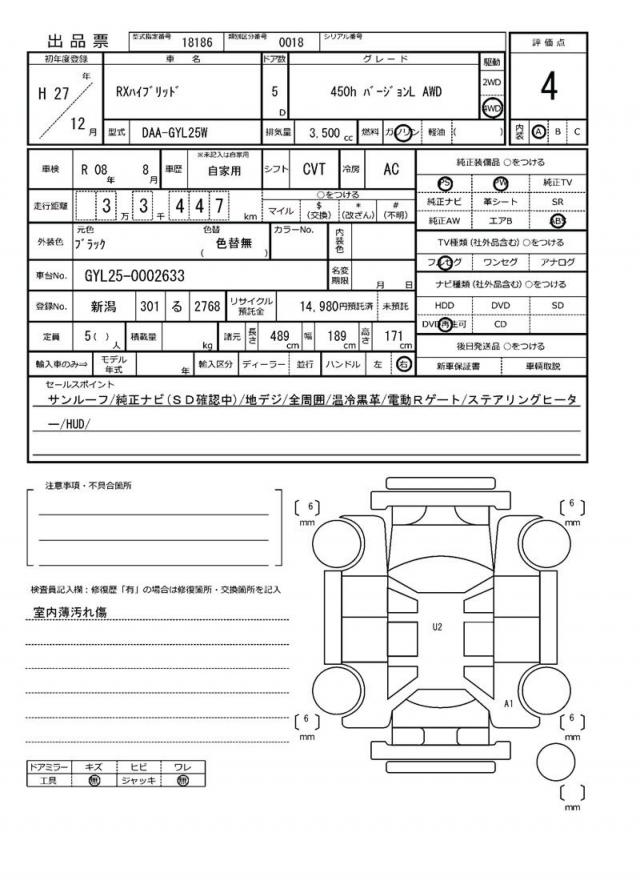 出品票 型式指定番号 18186 類別区分番号 0018 シリアル番号
評価点
初年度登録 車名 ドア数 グレード 駆動
H 27 年 RXハイブリッド 5 D 450h バージョンL AWD 2WD 4WD
4
12 月 型式 DAA-GYL25W 排気量 3,500 cc 燃料 ガソリン 軽油 ( )
内装 A B C
車検 R 08 年 8 月 車歴 ※未記入は自家用 自家用 シフト CVT 冷房 AC
純正装備品 ○をつける
PS PW 純正TV
走行距離 3 万 3 千 4 4 7 km
○をつける
マイル $ (交換) * (改ざん) # (不明)
純正ナビ 革シート SR
純正AW エアB ABS
外装色 元色 ブラック 色替 ( 色替無 ) カラーNo. 内装色
TV種類(社外品含む)○をつける
フルセグ ワンセグ アナログ
車台No. GYL25-0002633 名変期限 月 日
ナビ種類(社外品含む)○をつける
登録No. 新潟 301 る 2768 リサイクル預託金 14,980円預託済 未預託
HDD DVD SD
DVD再生可 CD
定員 5( ) 人 積載量 kg 諸元 長さ 489 cm 幅 189 cm 高さ 171 cm
後日発送品 ○をつける
輸入車のみ⇒ モデル年式 年 輸入区分 ディーラー 並行 ハンドル 左 右
新車保証書 車輌取説
セールスポイント
サンルーフ/純正ナビ(SD確認中)/地デジ/全周囲/温冷黒革/電動Rゲート/ステアリングヒータ
ー/HUD/
注意事項・不具合箇所
( 6 ) mm
( 6 ) mm
検査員記入欄：修復歴「有」の場合は修復箇所・交換箇所を記入
室内薄汚れ傷
U2
A1
( 6 ) mm
( 6 ) mm
ドアミラー キズ ヒビ ワレ
工具 無 ジャッキ 無
( ) mm